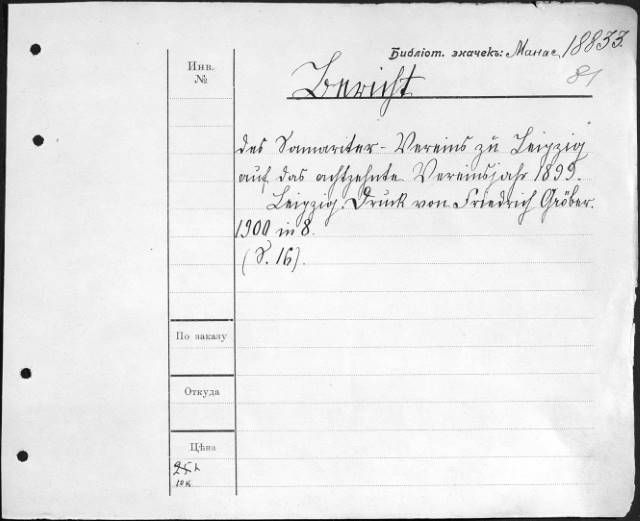 Библіот. значекъ: Манас. 18833.
81
Инв.
№
Bericht
des Samariter-Vereins zu Leipzig
auf das achtzehnte Vereinsjahr 1899.
Leipzig. Druck von Friedrich Gröber.
1900 in 8.
(S. 16).
По заказу
Откуда
Цѣна
10 к